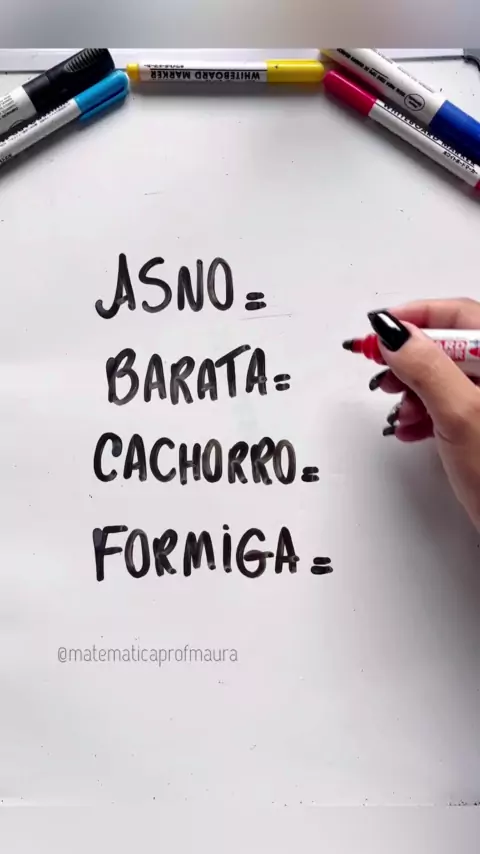 WHITEBOARD MARKER
ASNO=
BARATA=
CACHORRO=
FORMiGA=
@matematicaprofmaura